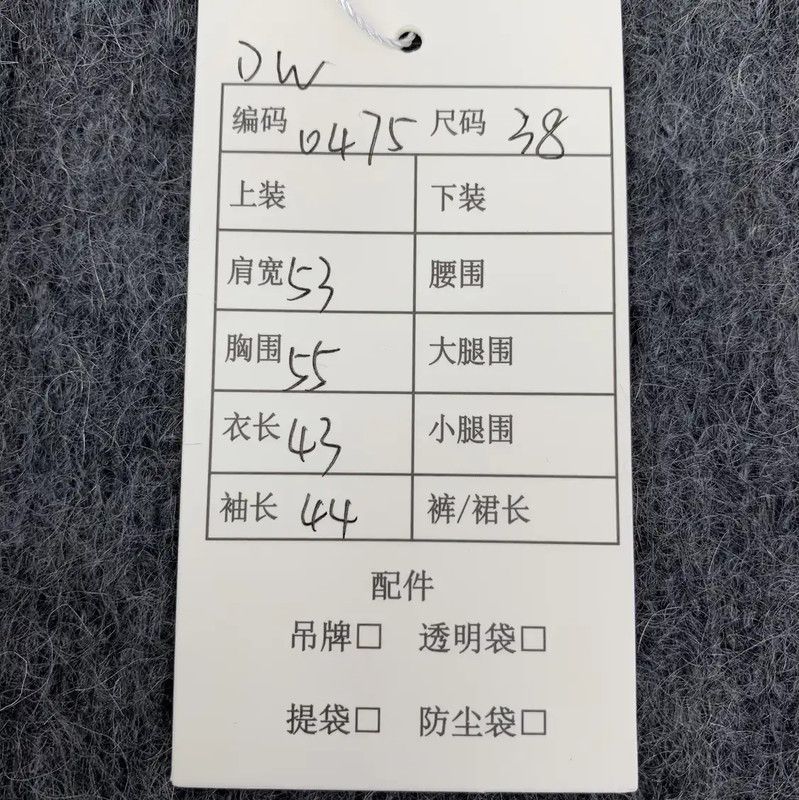 DW
编码 0475 尺码 38
上装 下装
肩宽 53 腰围
胸围 55 大腿围
衣长 43 小腿围
袖长 44 裤/裙长
配件
吊牌□ 透明袋□
提袋□ 防尘袋□